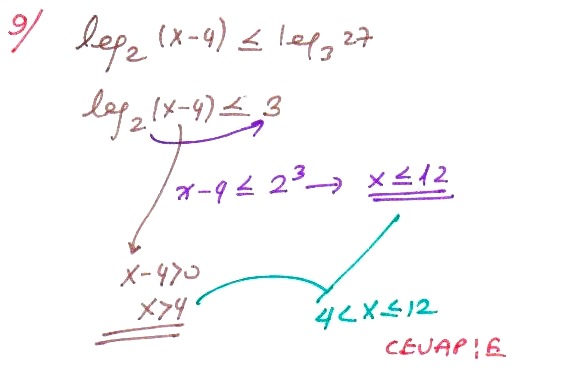 9/
log₂ (x-4) ≤ log₃ 27
log₂ (x-4) ≤ 3
x-4 ≤ 2³ → x ≤ 12
x-4>0
x>4
4<x≤12
CEVAP: E